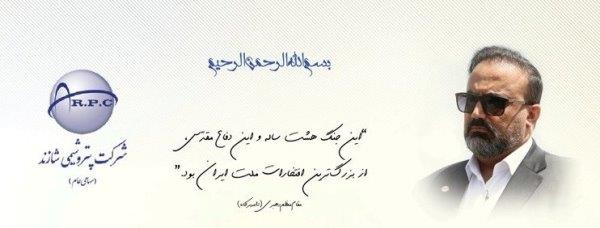 بسم الله الرحمن الرحیم
A R.P.C
شرکت پتروشیمی شازند
(سهامی عام)
"این جنگ هشت ساله و این دفاع مقدس،
از بزرگترین افتخارات ملت ایران بود."
مقام معظم رهبری (مدظله العالی)